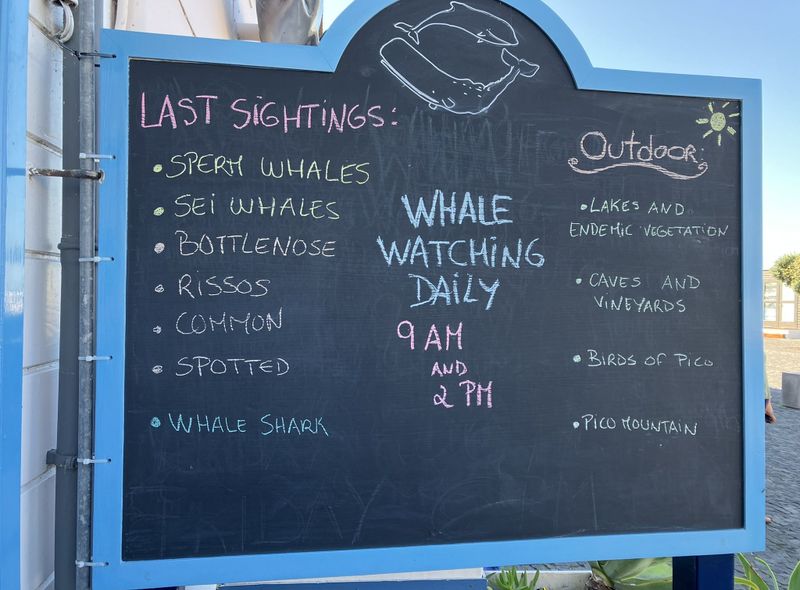 LAST SIGHTINGS:
• SPERM WHALES
• SEI WHALES
• BOTTLENOSE
• RISSOS
• COMMON
• SPOTTED
• WHALE SHARK
WHALE
WATCHING
DAILY
9 AM
AND
2 PM
Outdoor:
• LAKES AND
ENDEMIC VEGETATION
• CAVES AND
VINEYARDS
• BIRDS OF PICO
• PICO MOUNTAIN